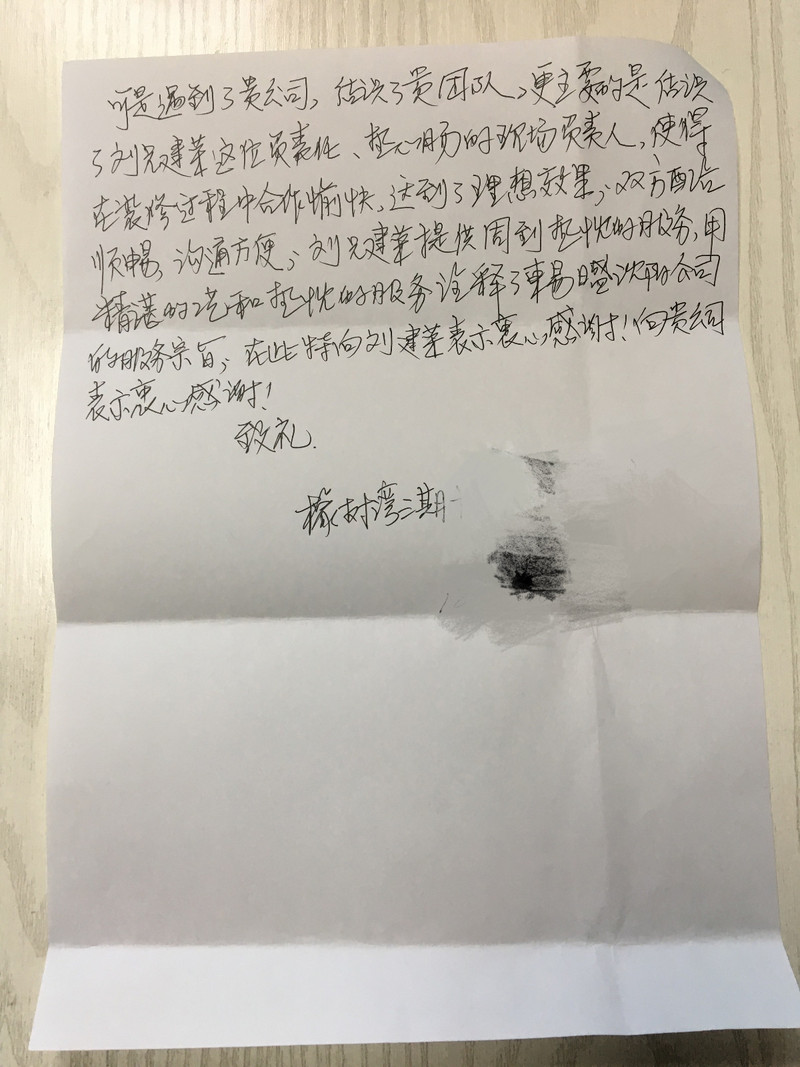 可是遇到了贵公司，结识了贵团队，更主要的是结识
了刘兄建华这位负责任、热心肠的现场负责人，使得
在装修过程中合作愉快，达到了理想效果；双方配合
顺畅，沟通方便；刘兄建华提供周到热忱的服务，用
精湛的工艺和热忱的服务诠释了東易日盛
的服务宗旨；在此特向刘建华表示衷心感谢！向贵公司
表示衷心感谢！
致礼.
橡树湾二期